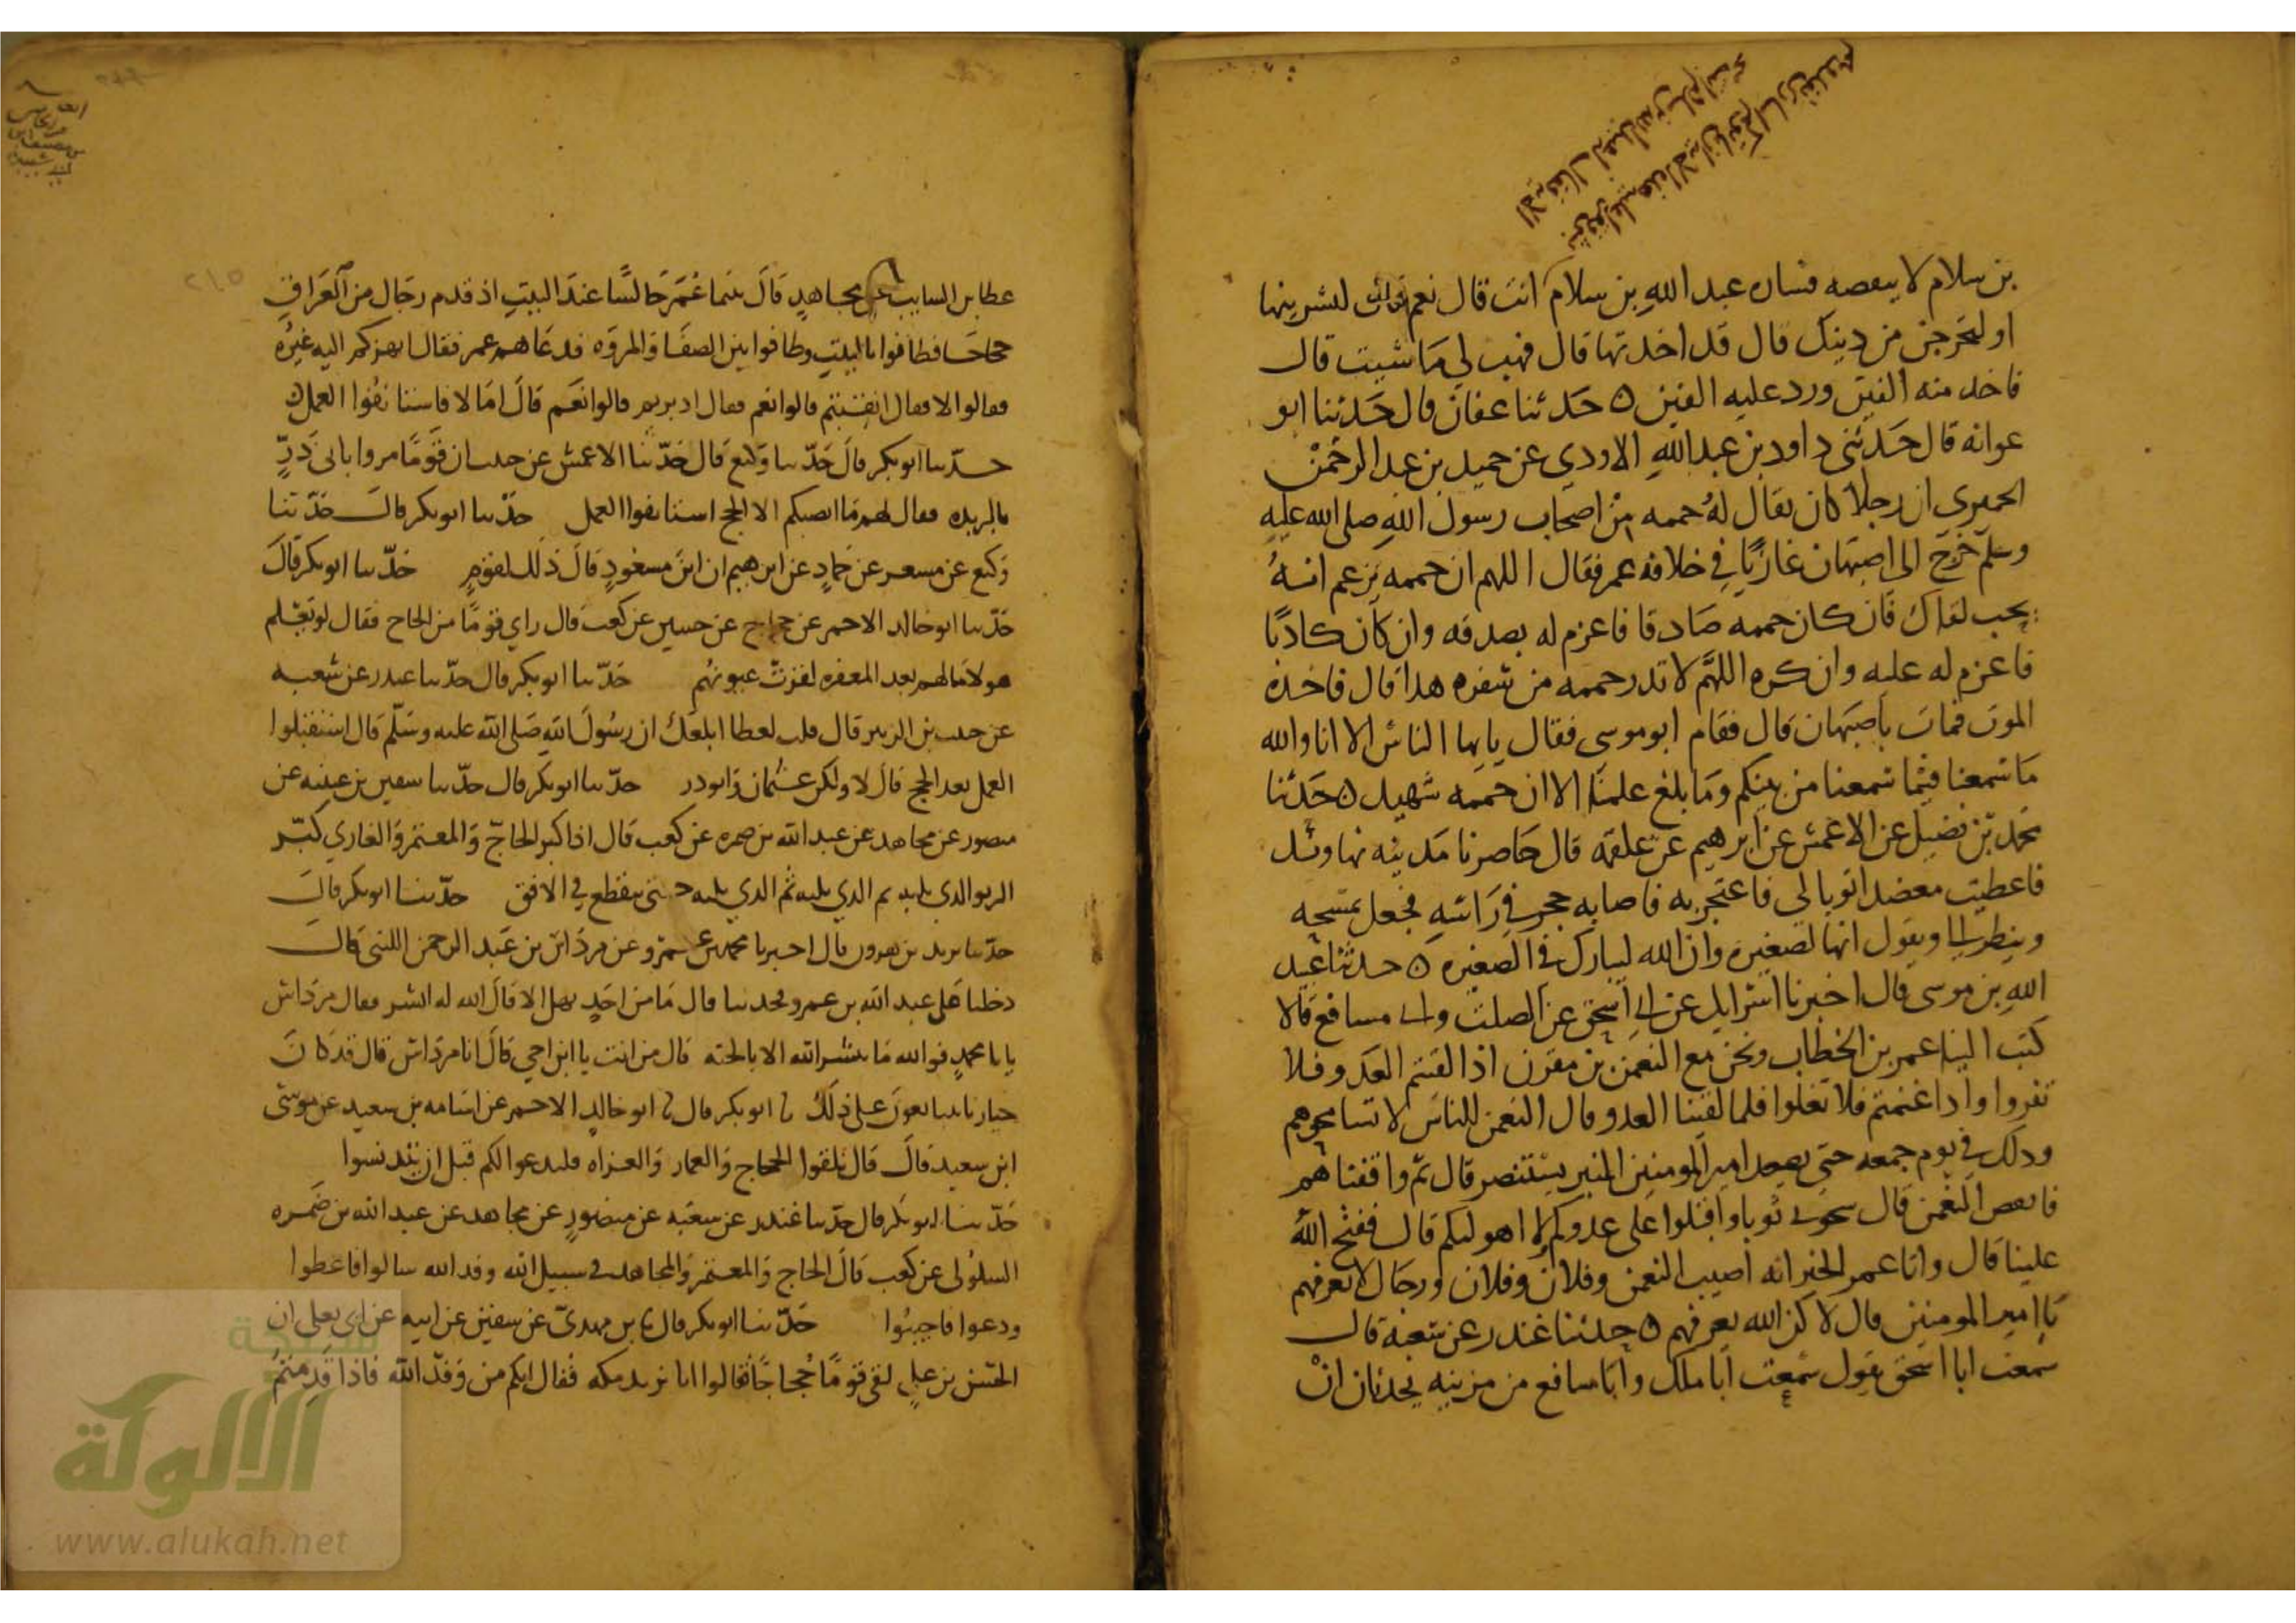 بن سلام لا ينقصه فساله عبد الله بن سلام انت قال نعم قال لتشرينها
او لتخرجن من دينك قال قد اخذتها قال فهب لي ما شيت قال
فاخذ منه الفين ورد عليه الفين ه حدثنا عفان قال حدثنا ابو
عوانه قال حدثني داود بن عبد الله الاودي عن حميد بن عبد الرحمن
الحميري ان رجلا كان يقال له حممه من اصحاب رسول الله صلى الله عليه
وسلم خرج الى اصبهان غازيا في خلافه عمر فقال اللهم ان حممه يزعم انه
يحب لقاك فان كان حممه صادقا فاعزم له بصدقه وان كان كاذبا
فاعزم له عليه وان كره اللهم لا ترد حممه من سفره هذا قال فاخذه
الموت فمات باصبهان قال فقام ابو موسى فقال يايها الناس الا انا والله
ما سمعنا فيما سمعنا من نبيكم وما بلغ علمنا الا ان حممه شهيد ه حدثنا
محمد بن فضيل عن الاعمش عن ابرهيم عن علقمه قال حاصرنا مدينه نهاوند
فاعطيت معضدا ثوبا لي فاعتجر به فاصابه حجر في راسه فجعل يمسحه
وينظر الي ويقول انها لصغيره وان الله ليبارك في الصغيره ه حدثنا عبيد
الله بن موسى قال اخبرنا اسرايل عن ابي اسحق عن الصلت وابي مسافع قالا
كتب الينا عمر بن الخطاب ونحن مع النعمن بن مقرن اذا لقيتم العدو فلا
تفروا واذا غنمتم فلا تغلوا فلما لقينا العدو قال النعمن للناس لا تواقعوهم
وذلك في يوم جمعه حتى يصعد امير المومنين المنبر يستنصر قال ثم واقعناهم
فانقعص النعمن قال سجوني ثوبا واقبلوا على عدوكم ولا اهولنكم قال ففتح الله
علينا قال واتا عمر الخبر انه اصيب النعمن وفلان وفلان ورجال لا نعرفهم
يا امير المومنين قال لاكن الله يعرفهم ه حدثنا غندر عن شعبه قال
سمعت ابا اسحق يقول سمعت ابا ملك وابا مسافع من مزينه يحدثان ان
عطا بن السايب عن مجاهد قال بينما عمر جالسا عند البيت اذ قدم رجال من العراق
حجاجا فطافوا بالبيت وطافوا بين الصفا والمروه فدعاهم عمر فقال انهزكم اليه غيره
فقالوا لا فقال انقبتم قالوا نعم فقال ادبرتم قالوا نعم قال اما لا فاستانفوا العمل ه
حدثنا ابو بكر قال حدثنا وكيع قال حدثنا الاعمش عن حبيب ان قوما مروا بابي ذر
بالربذه فقال لهم ما انصبكم الا الحج استانفوا العمل حدثنا ابو بكر قال حدثنا
وكيع عن مسعر عن حماد عن ابرهيم ان ابن مسعود قال ذلك لقوم حدثنا ابو بكر قال
حدثنا ابو خالد الاحمر عن حجاج عن حسين عن كعب قال راى قوما من الحاج فقال لو يعلم
هولا ما لهم بعد المغفره لقرت عيونهم حدثنا ابو بكر قال حدثنا غندر عن شعبه
عن حبيب بن الزبير قال قلت لعطا ابلغك ان رسول الله صلى الله عليه وسلم قال استقبلوا
العمل بعد الحج قال لا ولكن عثمان وابو ذر حدثنا ابو بكر قال حدثنا سفين بن عيينه عن
منصور عن مجاهد عن عبد الله بن ضمره عن كعب قال اذا كبر الحاج والمعتمر والغازي كبر
الربو الذي يليه ثم الذي يليه ثم الذي يليه حتى ينقطع في الافق حدثنا ابو بكر قال
حدثنا يزيد بن هرون قال اخبرنا محمد بن عمرو عن مرداس بن عبد الرحمن الليثي قال
دخلنا على عبد الله بن عمرو فحدثنا قال ما من احد يهل الا قال الله له ابشر فقال مرداس
يا با محمد فوالله ما يبشر الله الا بالجنه قال من انت يا ابن اخي قال انا مرداس قال قد كان
خيارنا يتبايعون على ذلك نا ابو بكر قال نا ابو خالد الاحمر عن اسامه بن سعيد عن موسى
ابن سعيد قال قال تلقوا الحجاج والعمار والغزاه فليدعوا لكم قبل ان يتدنسوا
حدثنا ابو بكر قال حدثنا غندر عن شعبه عن منصور عن مجاهد عن عبد الله بن ضمره
السلولي عن كعب قال الحاج والمعتمر والمجاهد في سبيل الله وفد الله سالوا فاعطوا
ودعوا فاجيبوا حدثنا ابو بكر قال نا بن مهدي عن سفين عن ابيه عن ابي يعلى ان
الحسن بن علي لقي قوما حجاجا فقالوا انا نريد مكه فقال انكم من وفد الله فاذا قدمتم
شبكة
الألوكة
www.alukah.net